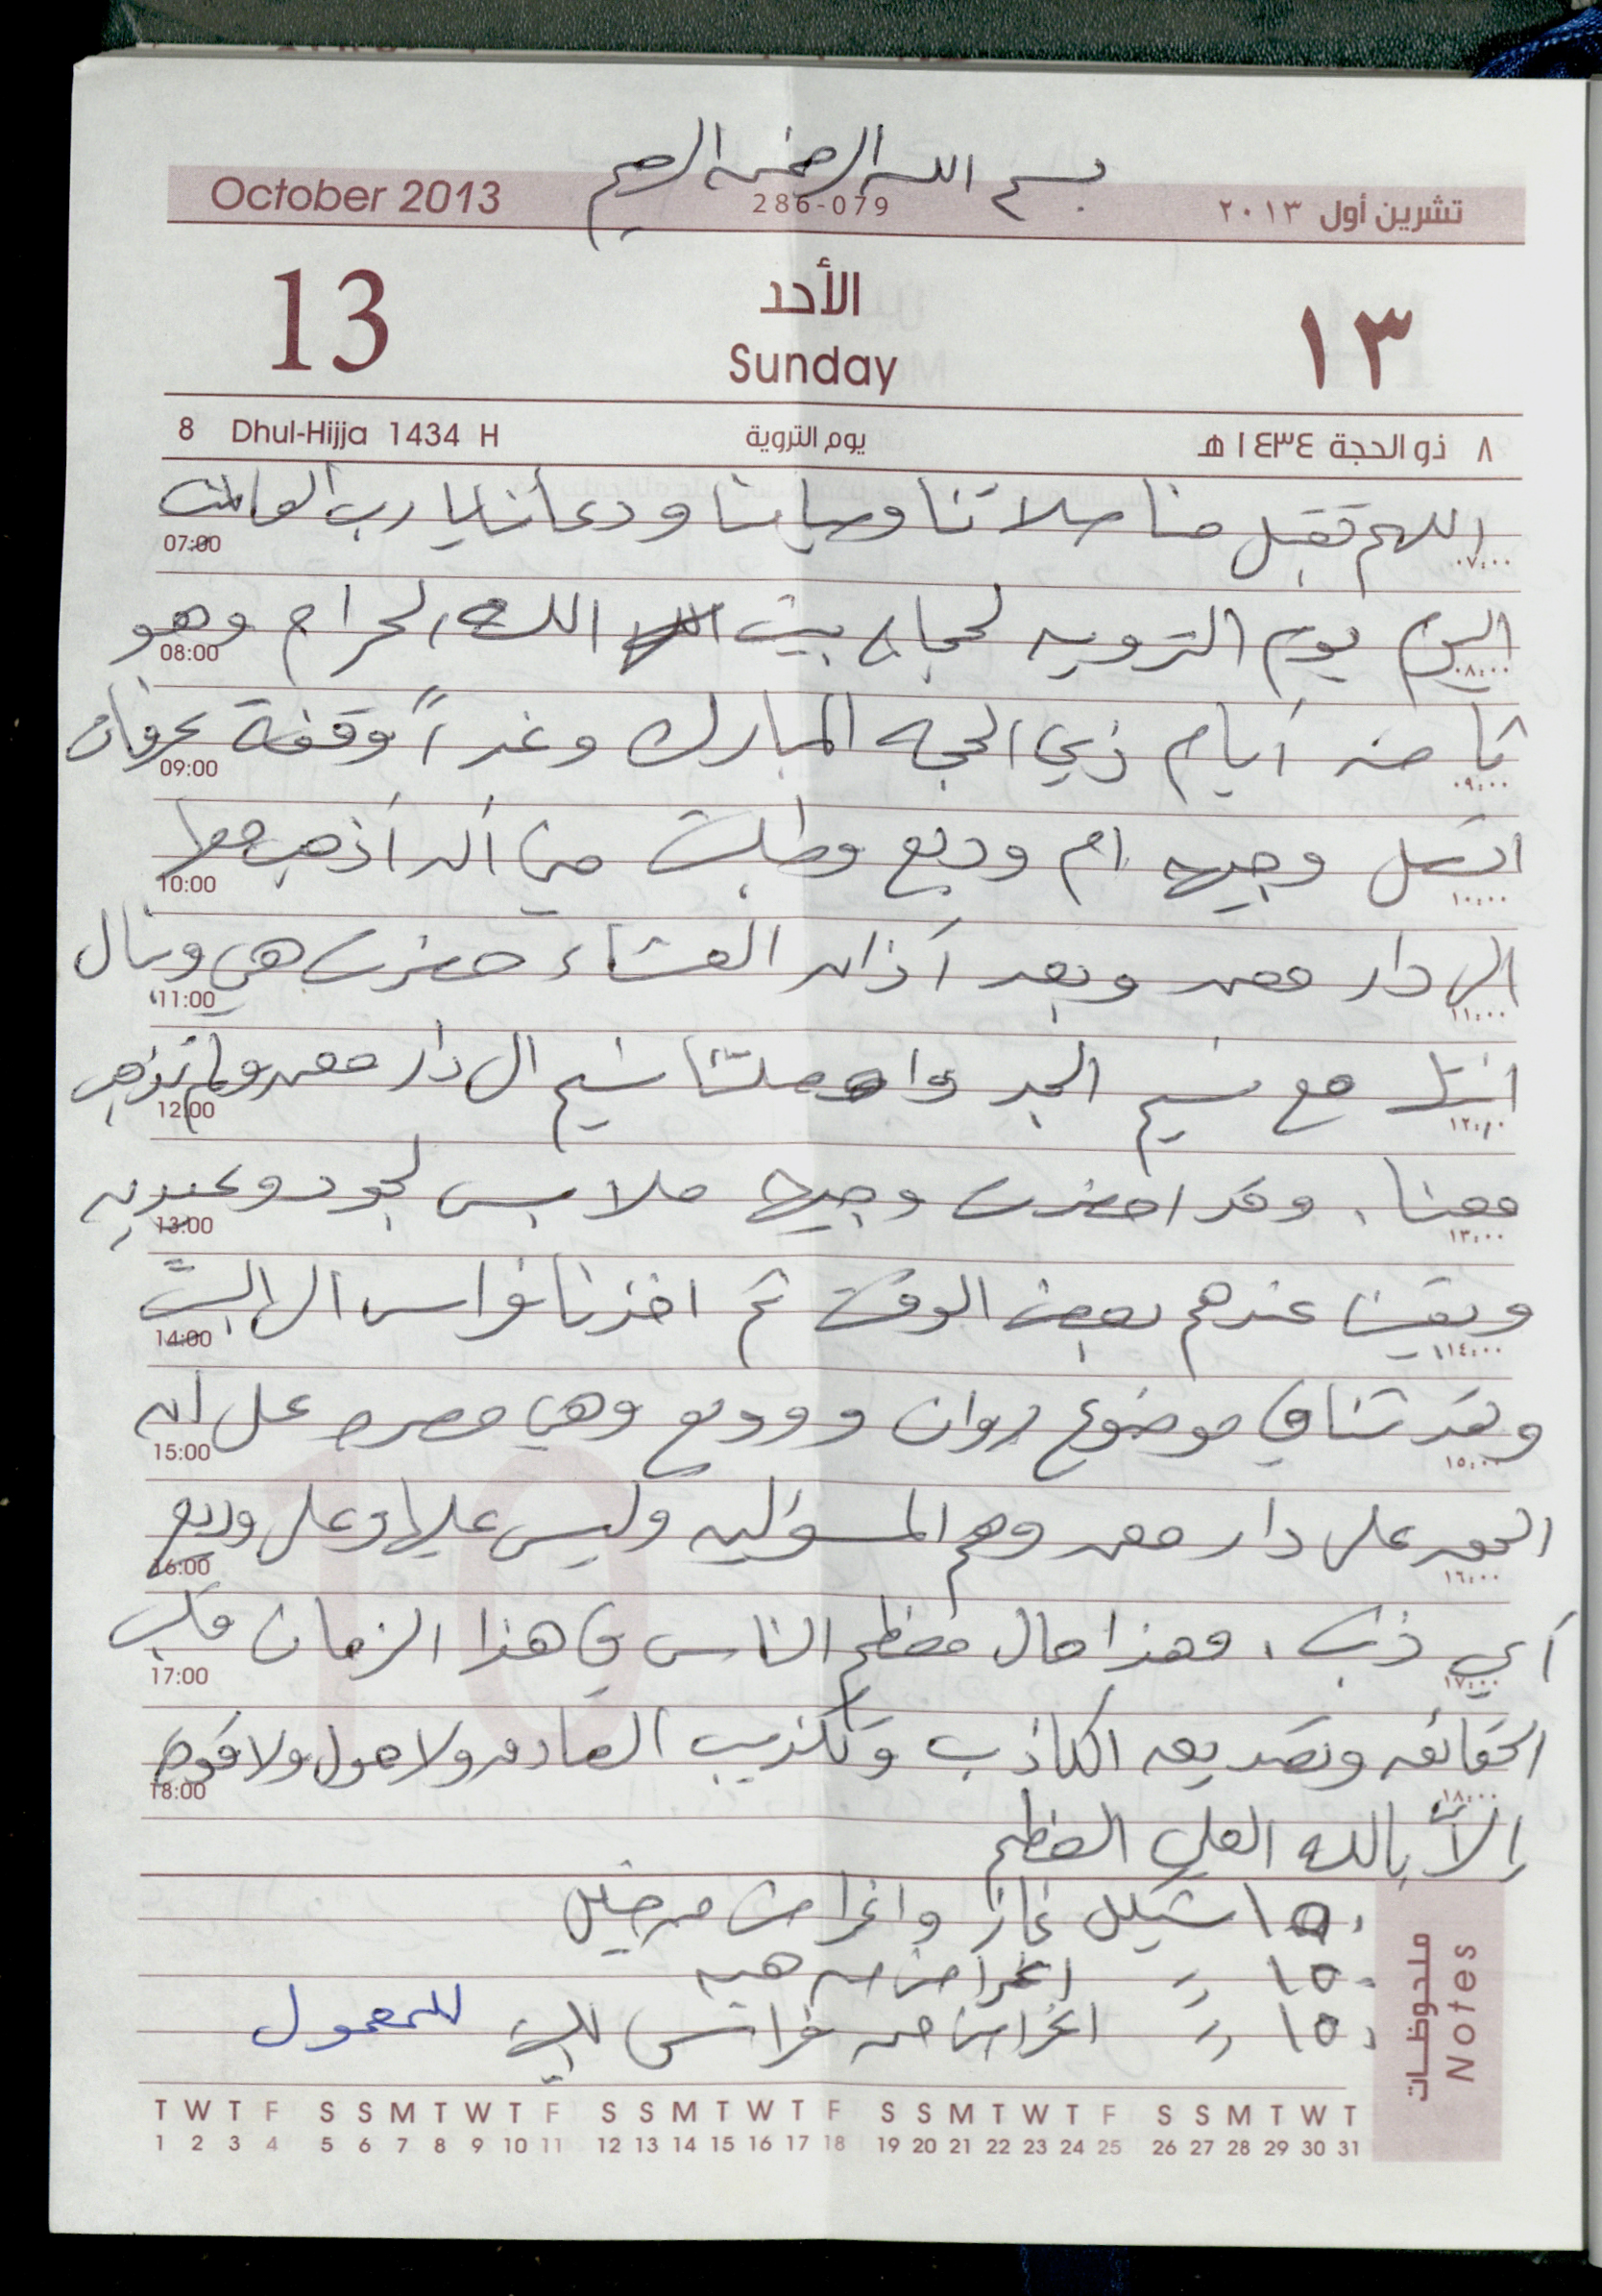 بسم الله الرحمن الرحيم
October 2013 286-079 تشرين أول ٢٠١٣
13 الأحد ١٣
Sunday
8 Dhul-Hijja 1434 H يوم التروية ٨ ذو الحجة ١٤٣٤ هـ
اللهم تقبل منا صلاتنا وصيامنا ودعأنا يا رب العالمين
07:00 ٠٧:٠٠
اليوم يوم الترويه لحجاج بيت الله الحرام وهو
08:00 ٠٨:٠٠
ثامن أيام ذي الحجه المبارك وغداً وقفة عرفات
09:00 ٠٩:٠٠
اتصل وجيهه ام وديع وطلبت مني أن أذهب معها
10:00 ١٠:٠٠
الى دار معن وبعد آذان العشاء حضرت هي ونال
11:00 ١١:٠٠
مع نسيم الجد نسيم ال دار معن ولم تذهب
12:00 ١٢:٠٠
معنا. وقد احضرت وجيهه ملابس لجود وعيديه
13:00 ١٣:٠٠
وبقينا عندهم بعض الوقت ثم اخذنا فراس الى البيت
14:00 ١٤:٠٠
في موضوع روان ووديع وهي مصره على ان
15:00 ١٥:٠٠
الحق على دار معن وهم المسؤلين وليس عليها وعلى وديع
16:00 ١٦:٠٠
أي ذنب. وهذا حال معظم الناس في هذا الزمان قلب
17:00 ١٧:٠٠
الحقائق وتصديق الكاذب وتكذيب الصادق ولا حول ولا قوة
18:00 ١٨:٠٠
إلاّ بالله العلي العظيم
١٥٠ شيكل غاز واغراض من
١٥٠ // اغراض من هبه
١٥٠ // اغراض من فراس للبيت للمعمول
ملحوظات Notes
T W T F S S M T W T F S S M T W T F S S M T W T F S S M T W T
1 2 3 4 5 6 7 8 9 10 11 12 13 14 15 16 17 18 19 20 21 22 23 24 25 26 27 28 29 30 31